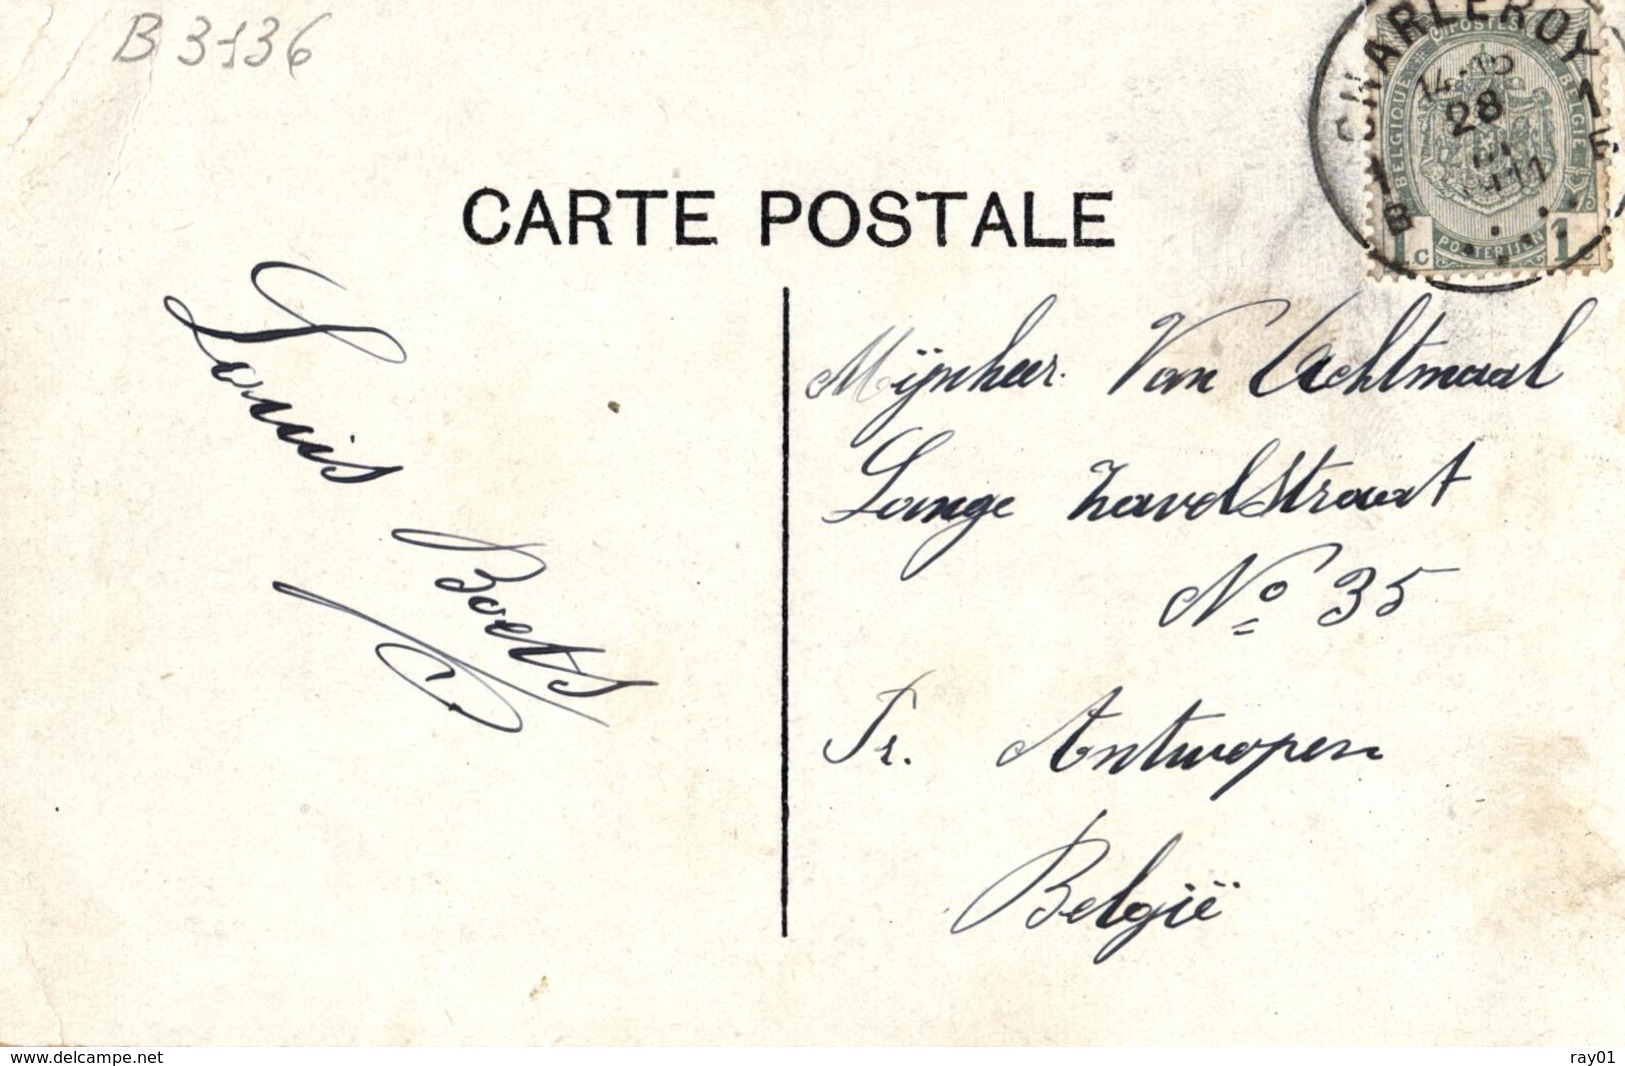 B 3136
CHARLEROY 1
14-15
28
1911
1 B
POSTES
BELGIQUE
BELGIË
POSTERIJEN
1c 1c
CARTE POSTALE
Louis
Boets
Mijnheer Van Achtmaal
Lange Zavelstraat
No 35
Tr. Antwopen
België
www.delcampe.net
ray01